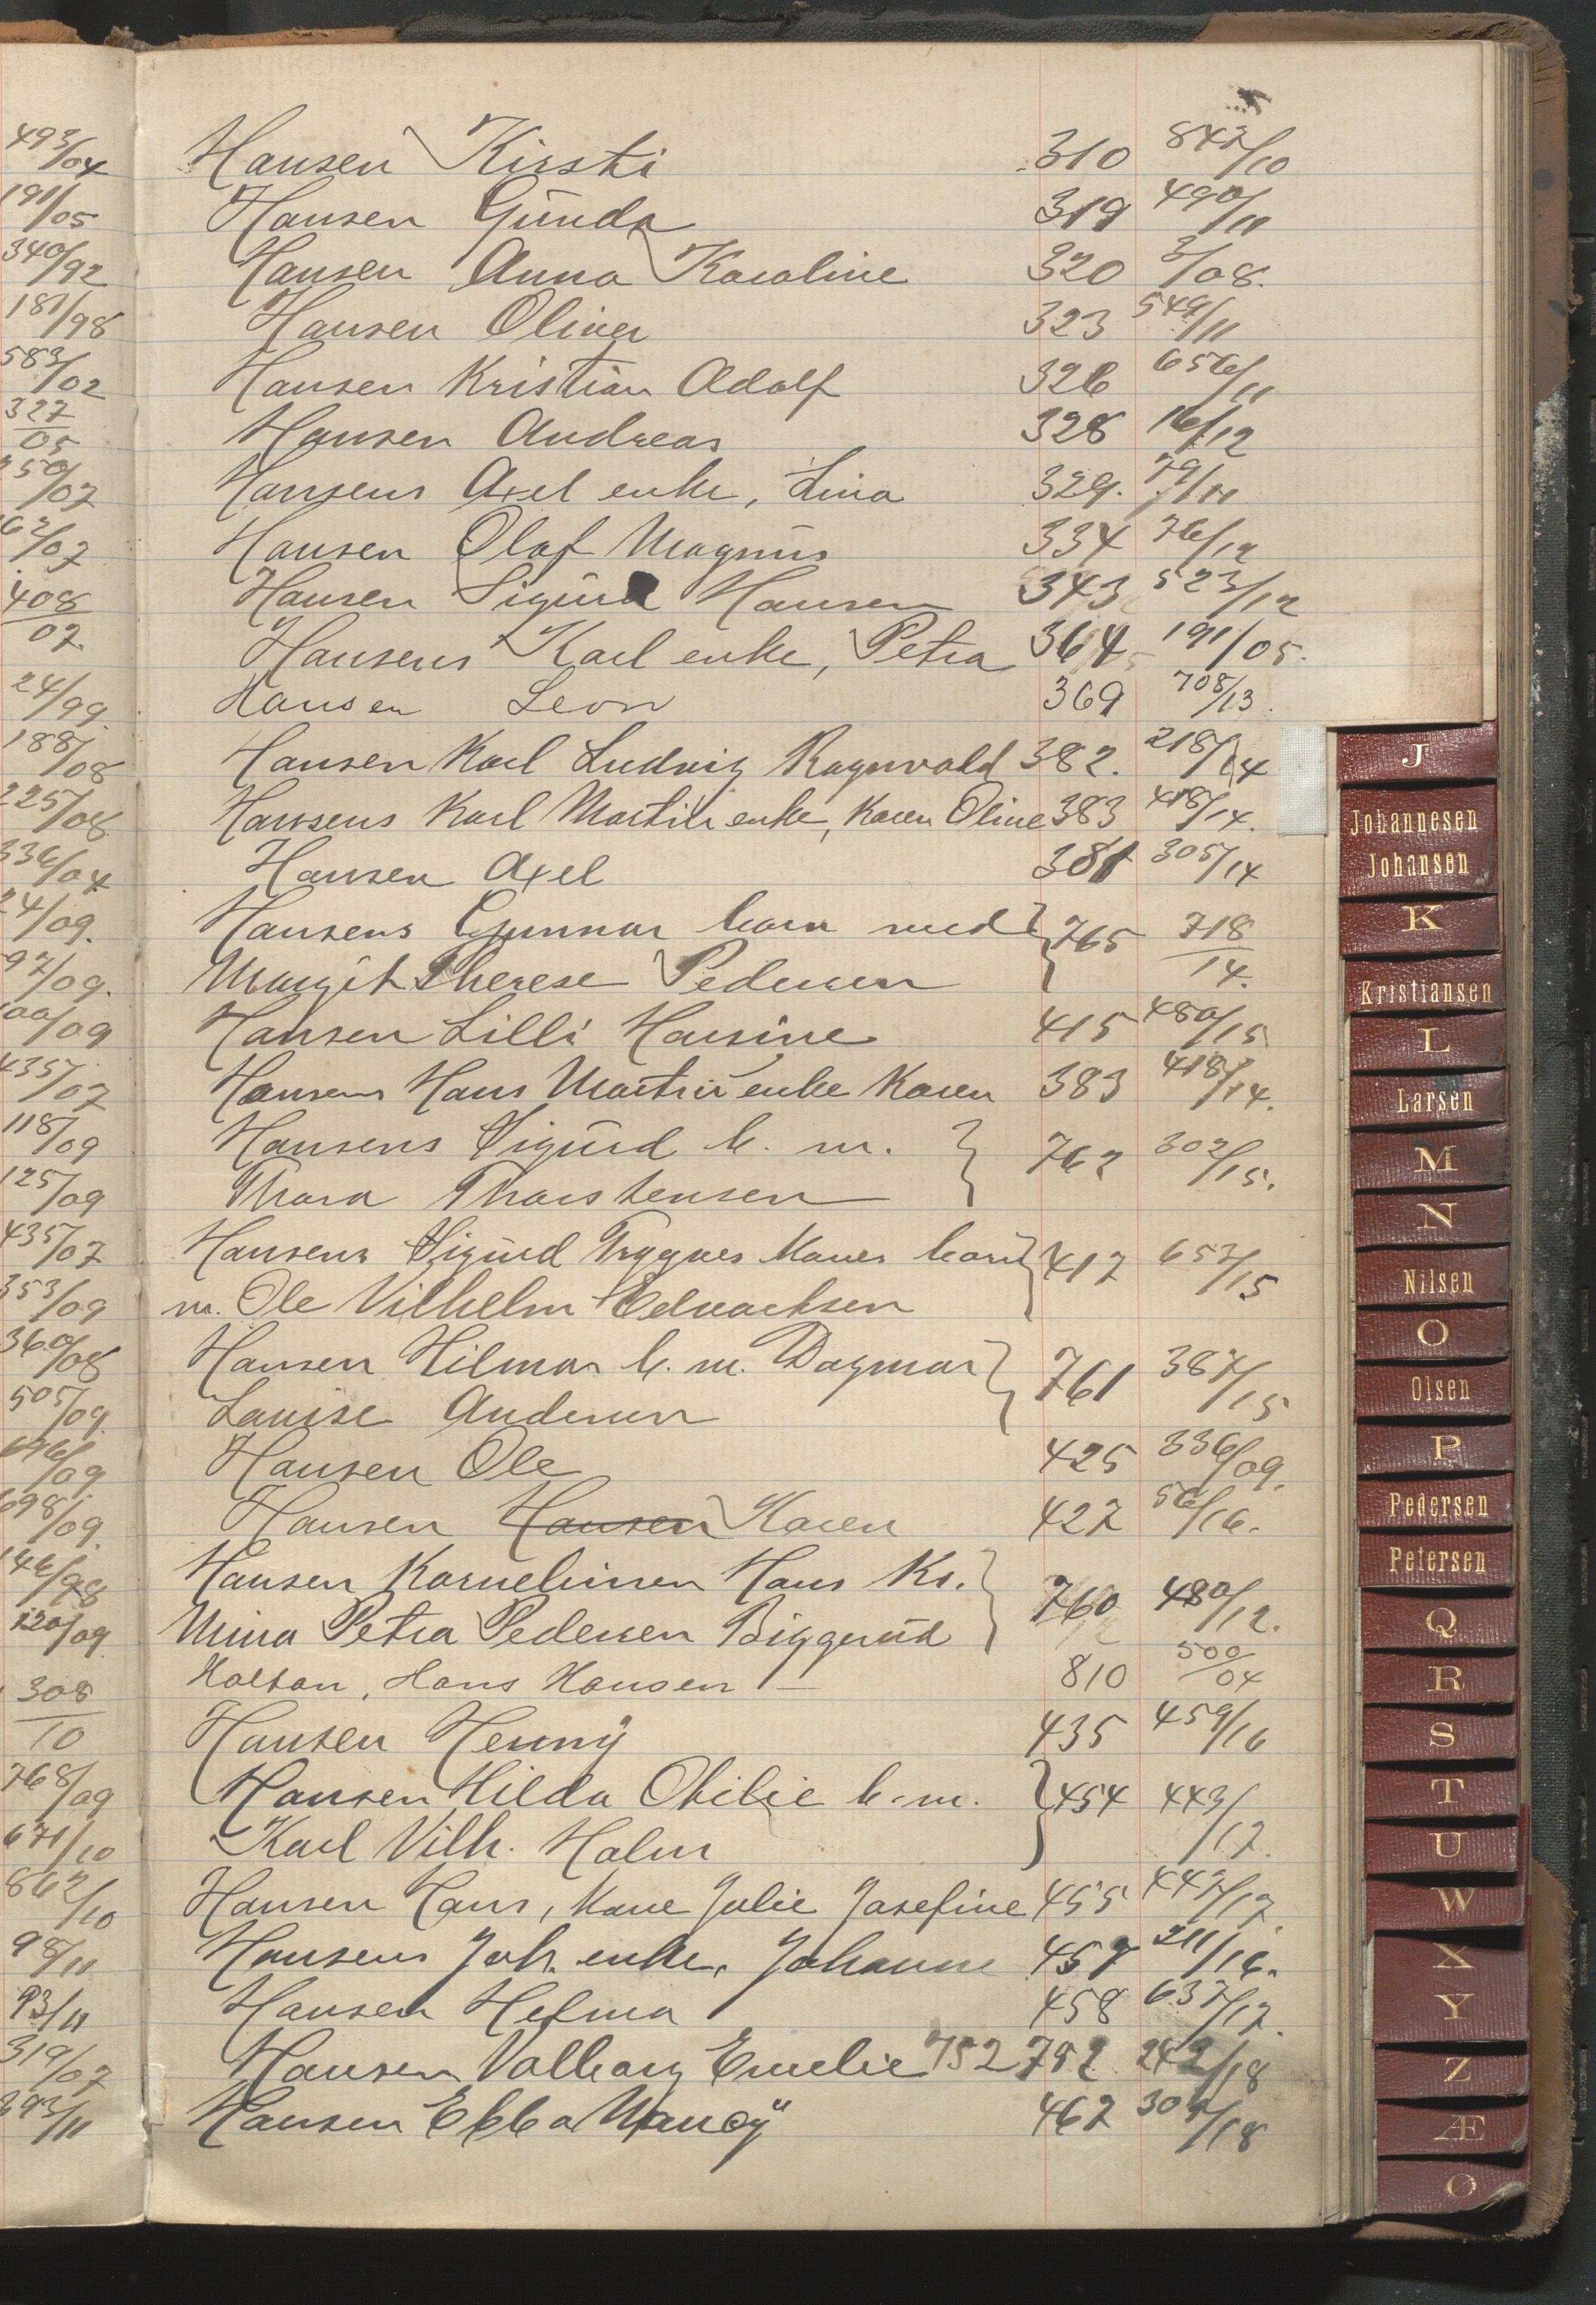 493/04
191/05
340/92
181/98
583/02
327/05
250/07
62/07
408/07.
24/99
188/08
225/08
336/04
24/09.
97/09.
00/09
435/07
118/09
125/09
435/07
353/09
360/08
505/09
696/09
698/09.
146/98
120/09
308/10
768/09
671/10
862/10
98/11
93/11
319/07
893/11
Hansen Kirsti 310 847/10
Hansen Gunda 319 490/11
Hansen Anna Karoline 320 3/08.
Hansen Oliver 323 549/11
Hansen Kristian Adolf 326 656/11
Hansen Andreas 328 16/12
Hansens Axel enke, Lina 329. 79/11
Hansen Olaf Magnus 334 76/12
Hansen Sigurd Hansen 343 523/12
Hansens Karl enke, Petra 364 191/05.
Hansen Leon 369 708/13.
Hansen Karl Ludvig Ragnvald 382. 218/14
Hansens Karl Martin enke, Karen Oline 383 418/14.
Hansen Axel 381 305/14
Hansens Gunnar barn med } 765 718/14.
Margit Therese Pedersen
Hansen Lilli Hansine 415 480/15
Hansens Hans Martin enke Karen 383 418/14.
Hansens Sigurd b. m. } 762 302/15.
Thora Thorstensen
Hansens Sigurd Trygves Kones barn } 417 657/15
m. Ole Vilhelm Edvardsen
Hansen Hilmar b. m. Dagmar } 761 387/15
Lovise Andersen
Hansen Ole 425 336/09.
Hansen Hansen Karen 427 56/16.
Hansen Korneliussen Hans Kr. } 760 480/12.
Mina Petra Pedersen Biggerud
Holtan, Hans Hansen — 810 500/04
Hansen Henny 435 459/16
Hansen Hilda Otilie b. m. } 454 443/17.
Karl Vilh. Holm
Hansen Hans, Kone Julie Josefine 455 447/17
Hansens Joh. enke, Johanne 457 211/16.
Hansen Helma 458 637/17.
Hansen Valborg Emelie 752 752 242/18
Hansen Ebba Nancy 462 307/18
J
Johannesen
Johansen
K
Kristiansen
L
Larsen
M
N
Nilsen
O
Olsen
P
Pedersen
Petersen
Q
R
S
T
U
W
X
Y
Z
Æ
Ø